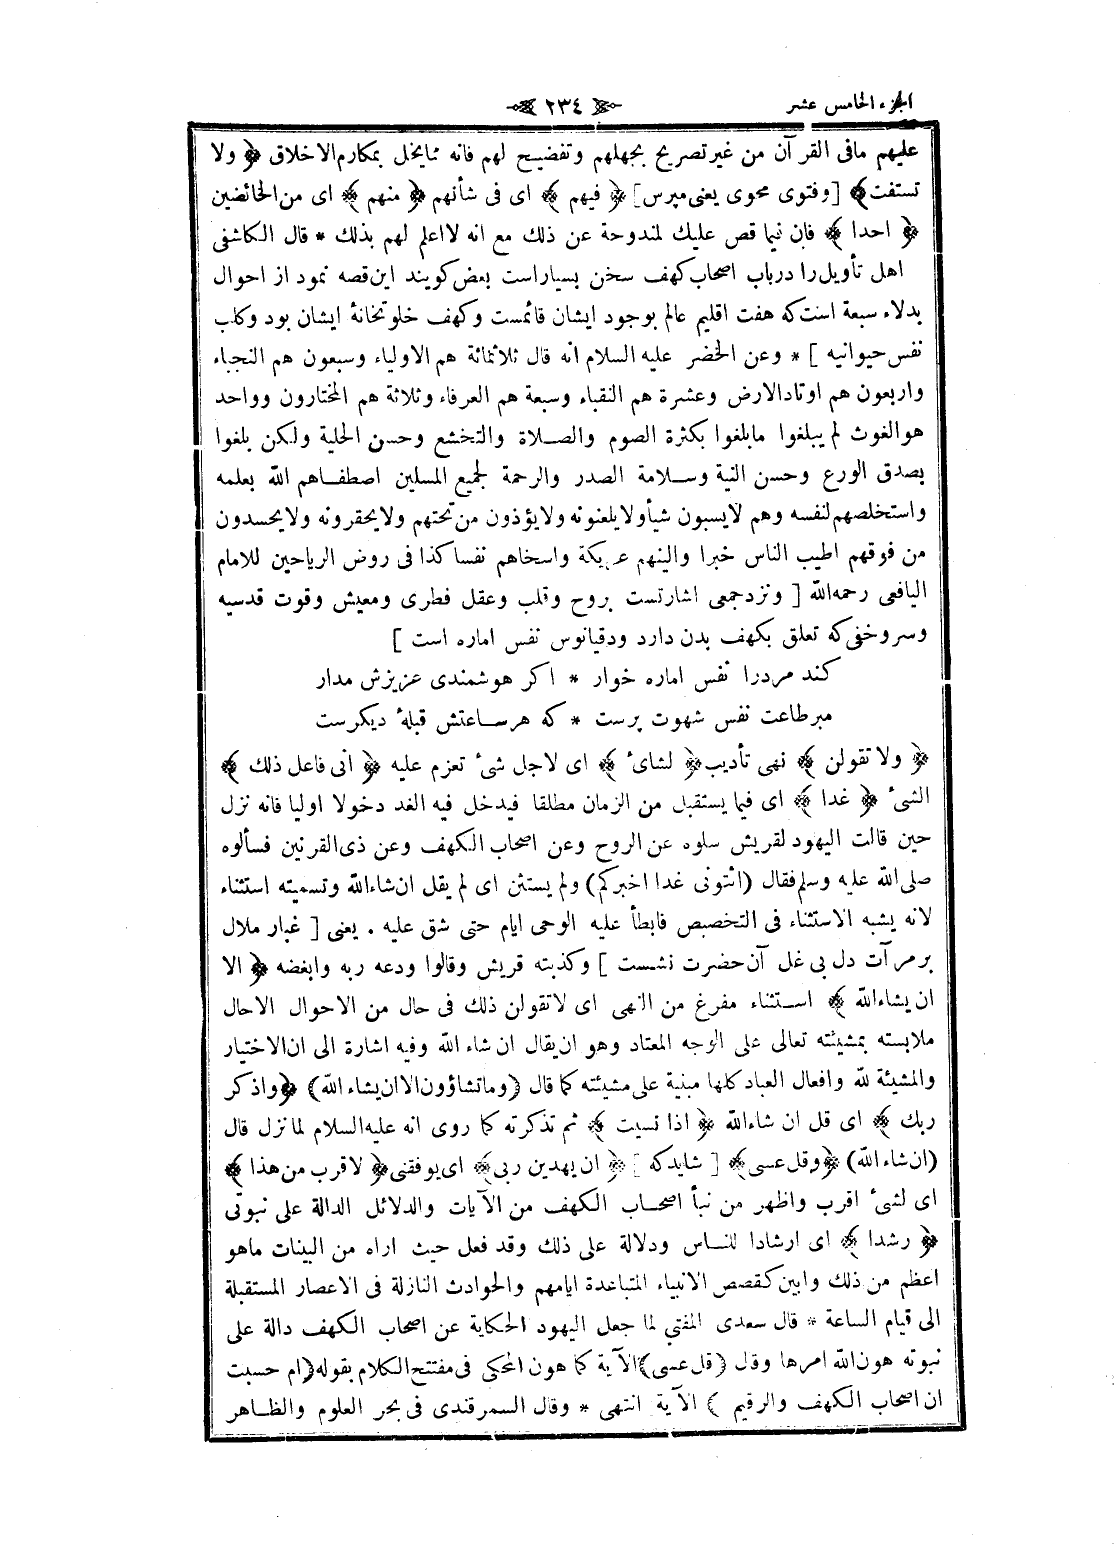 الجزء الخامس عشر
٢٣٤
عليهم مافى القرآن من غير تصريح بجهلهم وتفضيح لهم فانه ممايخل بمكارم الاخلاق ﴿ ولا
تستفت ﴾ [ وفتوى محوى يعنى مپرس ] ﴿ فيهم ﴾ اى فى شأنهم ﴿ منهم ﴾ اى من الخائضين
﴿ احدا ﴾ فان فيما قص عليك لمندوحة عن ذلك مع انه لاعلم لهم بذلك * قال الكاشفى
اهل تأويل را درباب اصحاب كهف سخن بسياراست بعض كويند اين قصه نمود از احوال
بدلاء سبعة است كه هفت اقليم عالم بوجود ايشان قائمست وكهف خلوتخانۀ ايشان بود وكلب
نفس حيوانيه ] * وعن الخضر عليه السلام انه قال ثلاثمائة هم الاولياء وسبعون هم النجباء
واربعون هم اوتاد الارض وعشرة هم النقباء وسبعة هم العرفاء وثلاثة هم المختارون وواحد
هو الغوث لم يبلغوا مابلغوا بكثرة الصوم والصلاة والتخشع وحسن الحلية ولكن بلغوا
بصدق الورع وحسن النية وسلامة الصدر والرحمة لجميع المسلمين اصطفاهم الله بعلمه
واستخلصهم لنفسه وهم لايسبون شيأ ولايلعنونه ولايؤذون من تحتهم ولايحقرونه ولايحسدون
من فوقهم اطيب الناس خبرا والينهم عريكة واسخاهم نفسا كذا فى روض الرياحين للامام
اليافعى رحمه الله [ ونزد جمعى اشارتست بروح وقلب وعقل فطرى ومعيش وقوت قدسيه
وسر وخفى كه تعلق بكهف بدن دارد ودقيانوس نفس اماره است ]
كند مردرا نفس اماره خوار * اكر هوشمندى عزيزش مدار
مبر طاعت نفس شهوت پرست * كه هر ساعتش قبلۀ ديكرست
﴿ ولا تقولن ﴾ نهى تأديب ﴿ لشاىء ﴾ اى لاجل شىء تعزم عليه ﴿ انى فاعل ذلك ﴾
الشىء ﴿ غدا ﴾ اى فيما يستقبل من الزمان مطلقا فيدخل فيه الغد دخولا اوليا فانه نزل
حين قالت اليهود لقريش سلوه عن الروح وعن اصحاب الكهف وعن ذى القرنين فسألوه
صلى الله عليه وسلم فقال (ائتونى غدا اخبركم) ولم يستثن اى لم يقل ان شاء الله وتسميته استثناء
لانه يشبه الاستثناء فى التخصيص فابطأ عليه الوحى ايام حتى شق عليه . يعنى [ غبار ملال
برمرآت دل بى غل آن حضرت نشست ] وكذبته قريش وقالوا ودعه ربه وابغضه ﴿ الا
ان يشاء الله ﴾ استثناء مفرغ من النهى اى لاتقولن ذلك فى حال من الاحوال الاحال
ملابسته بمشيئته تعالى على الوجه المعتاد وهو ان يقال ان شاء الله وفيه اشارة الى ان الاختيار
والمشيئة لله وافعال العباد كلها مبنية على مشيئته كما قال (وماتشاؤون الا ان يشاء الله) ﴿ واذكر
ربك ﴾ اى قل ان شاء الله ﴿ اذا نسيت ﴾ ثم تذكرته كما روى انه عليه السلام لما نزل قال
(ان شاء الله) ﴿ وقل عسى ﴾ [ شايدكه ] ﴿ ان يهدين ربى ﴾ اى يوفقنى ﴿ لاقرب من هذا ﴾
اى لشىء اقرب واظهر من نبأ اصحاب الكهف من الآيات والدلائل الدالة على نبوتى
﴿ رشدا ﴾ اى ارشادا للناس ودلالة على ذلك وقد فعل حيث اراه من البينات ماهو
اعظم من ذلك وابين كقصص الانبياء المتباعدة ايامهم والحوادث النازلة فى الاعصار المستقبلة
الى قيام الساعة * قال سعدى المفتى لما جعل اليهود الحكاية عن اصحاب الكهف دالة على
نبوته هون الله امرها وقل (قل عسى) الآية كما هون المحكى فى مفتتح الكلام بقوله (ام حسبت
ان اصحاب الكهف والرقيم) الآية انتهى * وقال السمرقندى فى بحر العلوم والظاهر